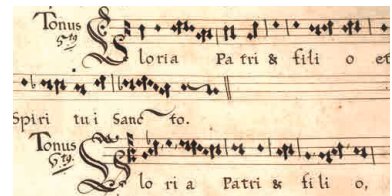 Tonus Gloria Patri & fili o et
5.tg
Spiri tu i Sanc to.
Tonus Glo ri a Patri & fi li o,